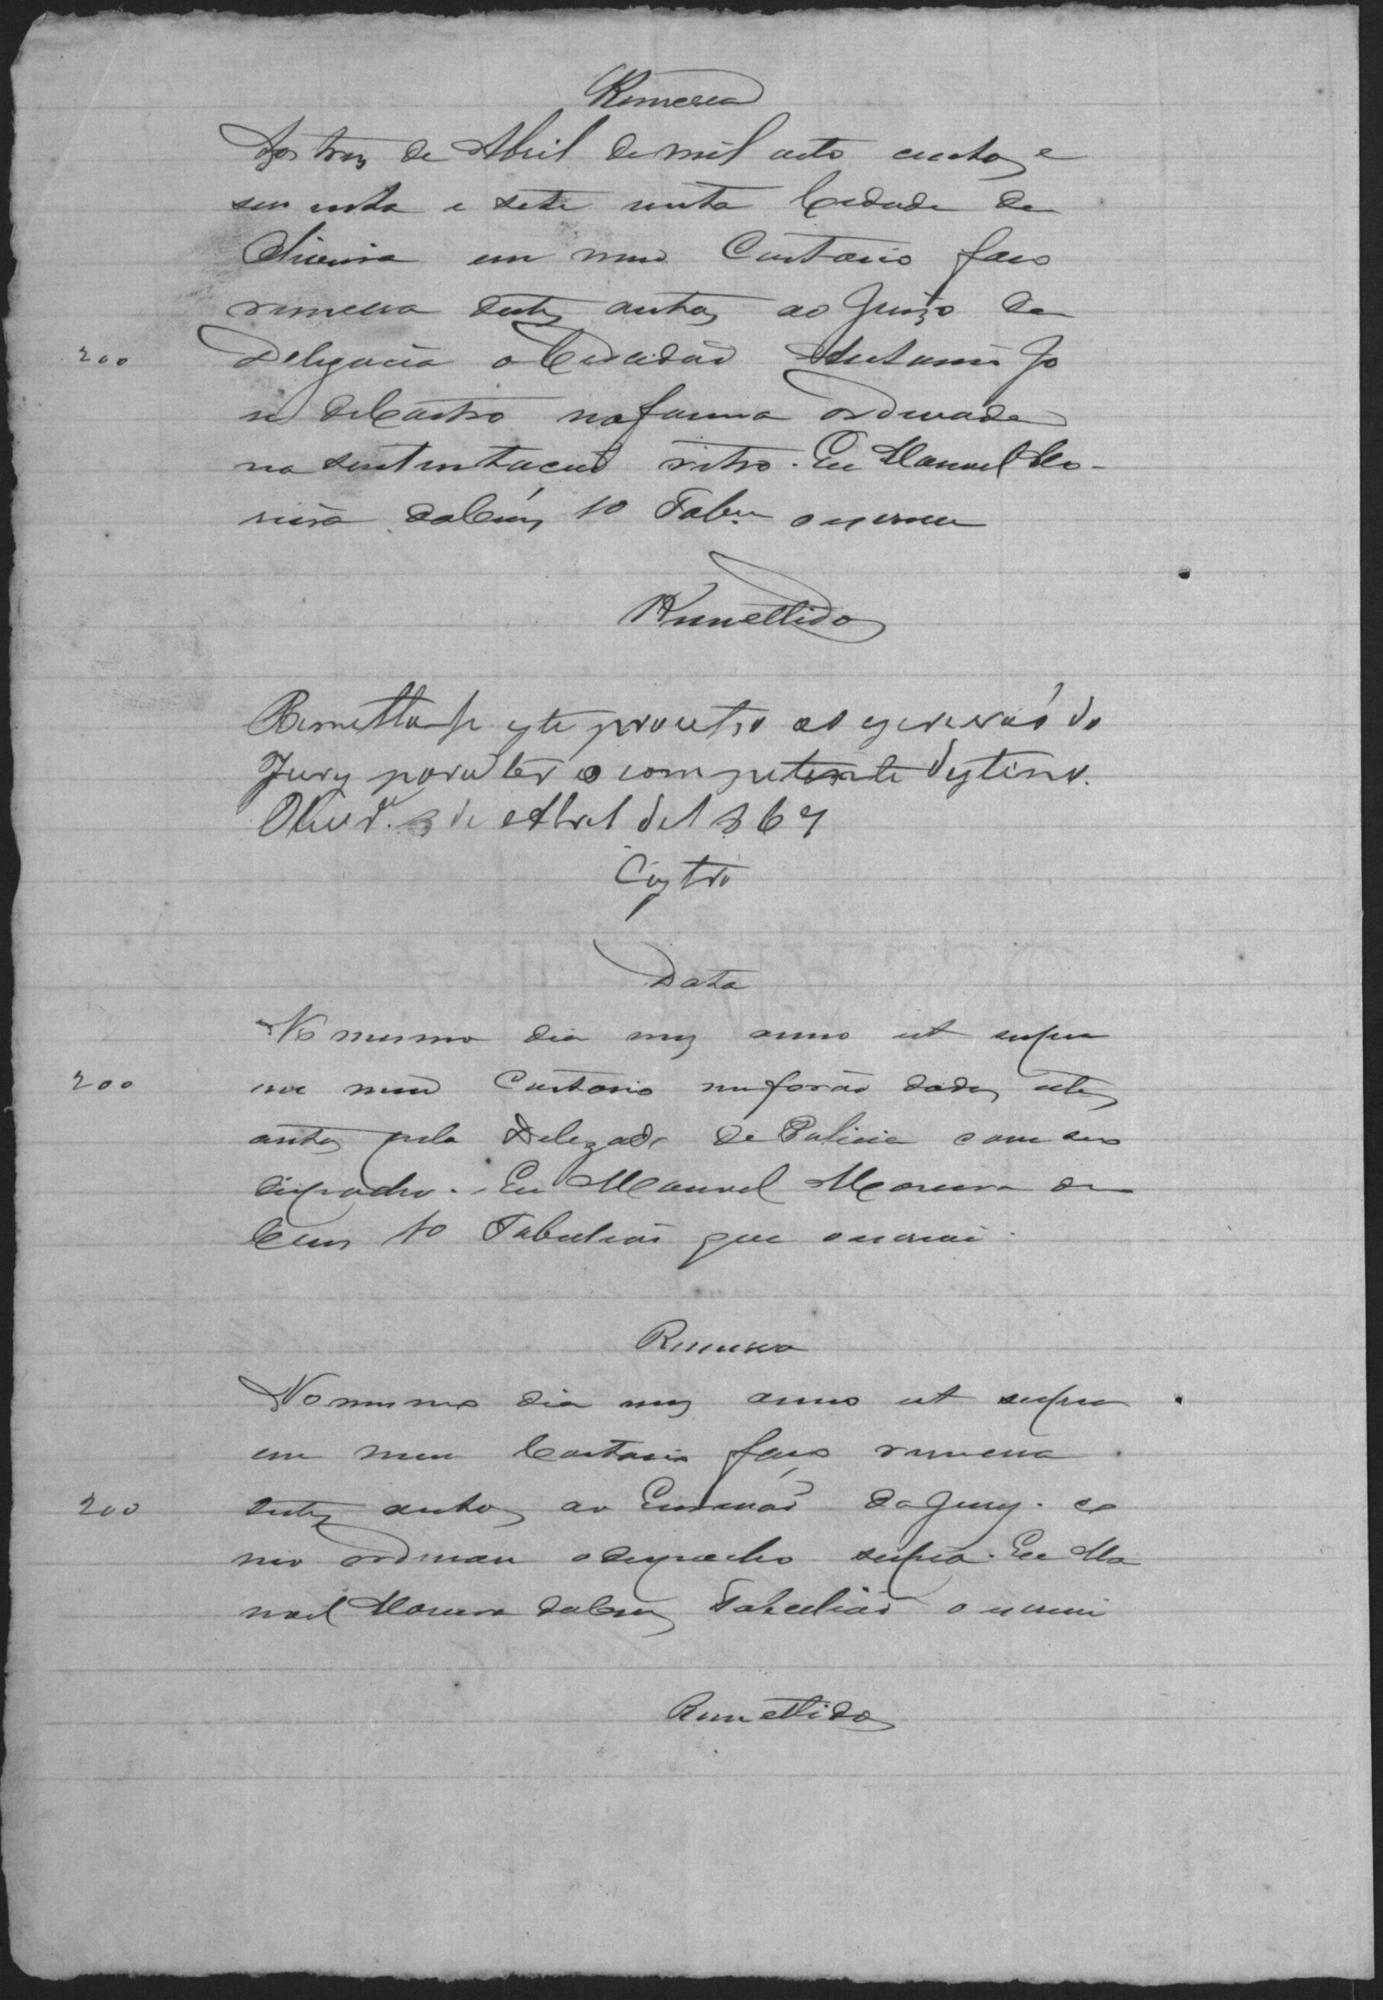 Remessa
Aos tres de Abril de mil oito centos e
sessenta e sete nesta Cidade de
Oliveira em meu Cartorio faço
remessa destes autos ao Juizo da
200 Delegacia o Cidadão Antonio Jo
se de Castro na forma ordenada
na sustentação retro. Eu Manoel Mo-
reira da Cruz 1o Tabam o escrevi
Remettidos
Remetta-se este processo ao escrivão do
Jury para ter o competente destino.
Olivra 3 de Abril de 1867
Castro
Data
No mesmo dia mez anno ut supra
200 em meu Cartorio me forão dados estes
autos pelo Delegado de Policia com seu
despacho. Eu Manoel Moreira da
Cruz 1o Tabelião que o escrevi
Remessa
No mesmo dia mez anno ut supra
em meu Cartorio faço remessa
200 destes autos ao Escrivão do Jury. co
mo ordenou o despacho supra. Eu Ma
noel Moreira da Cruz Tabelião o escrevi
Remettidos